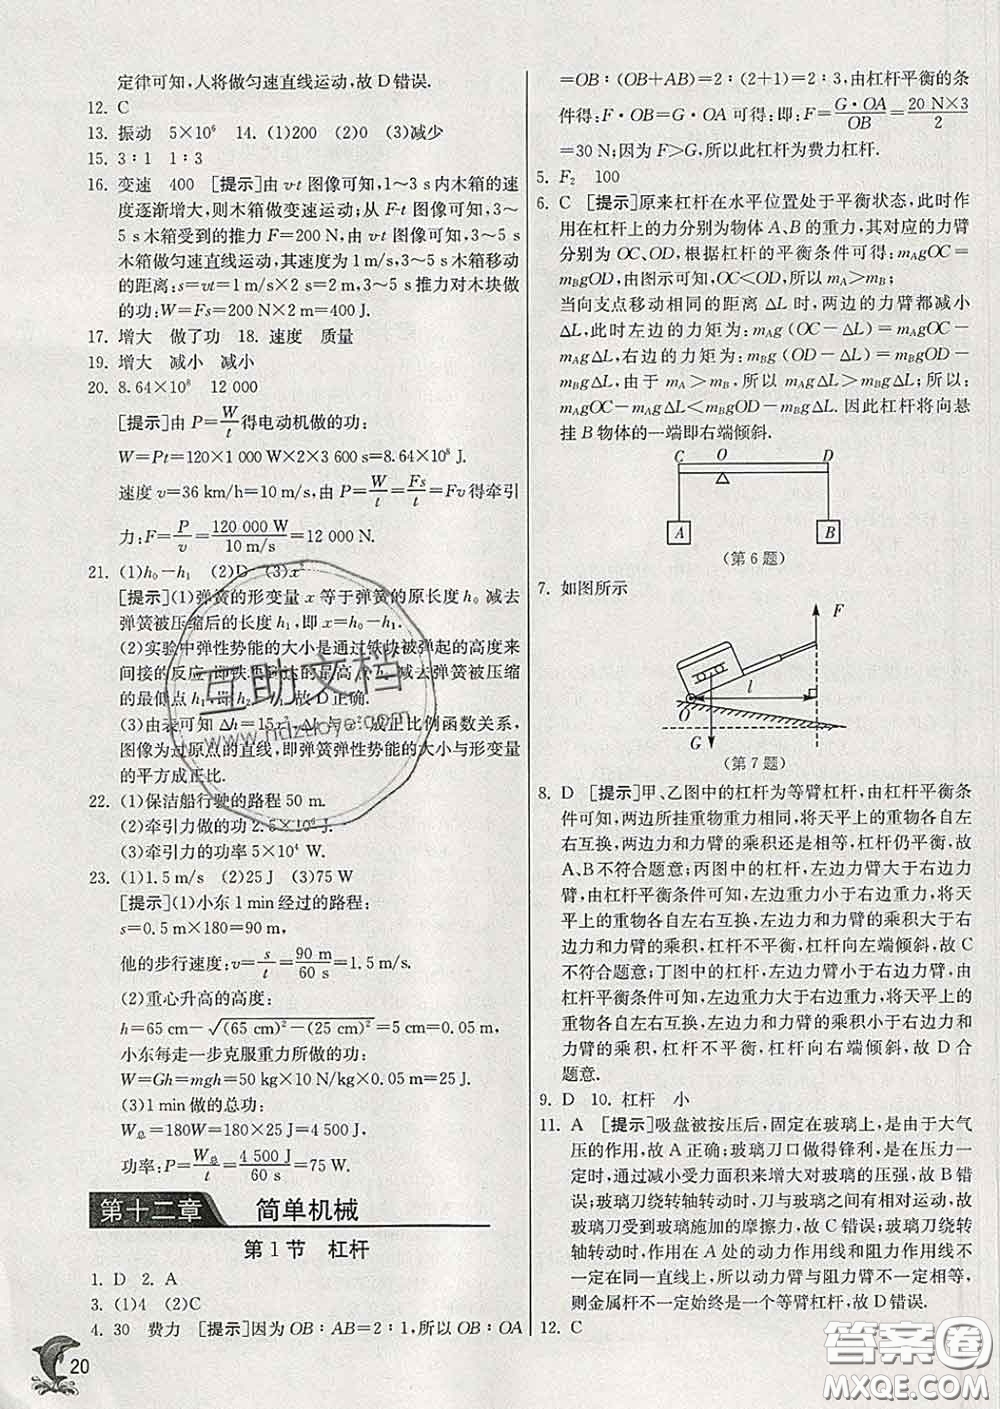 定律可知,人将做匀速直线运动,故 D 错误.
12. C
13. 振动 5×10⁶ 14. (1)200 (2)0 (3)减少
15. 3∶1 1∶3
16. 变速 400 [提示]由 v-t 图像可知,1～3 s 内木箱的速
度逐渐增大,则木箱做变速运动;从 F-t 图像可知,3～
5 s 木箱受到的推力 F=200 N,由 v-t 图像可知,3～5 s
木箱做匀速直线运动,其速度为 1 m/s,3～5 s 木箱移动
的距离:s=vt=1 m/s×2 s=2 m,3～5 s 推力对木块做
的功:W=Fs=200 N×2 m=400 J.
17. 增大 做了功 18. 速度 质量
19. 增大 减小 减小
20. 8.64×10⁸ 12 000
[提示]由 P=W/t 得电动机做的功:
W=Pt=120×1 000 W×2×3 600 s=8.64×10⁸ J.
速度 v=36 km/h=10 m/s,由 P=W/t=Fs/t=Fv 得牵引
力:F=P/v=120 000 W/10 m/s=12 000 N.
21. (1)h₀-h₁ (2)D (3)x²
[提示](1)弹簧的形变量 x 等于弹簧的原长度 h₀ 减去
弹簧被压缩后的长度 h₁,即 x=h₀-h₁.
(2)实验中弹性势能的大小是通过铁块被弹起的高度来
间接的反应,即铁块的最高点 h₂ 减去弹簧被压缩
的最低点 h₁,即 h₂-h₁,故 D 正确.
(3)由表可知 Δh=15x²,Δh 与 x² 成正比例函数关系,
图像为过原点的直线,即弹簧弹性势能的大小与形变量
的平方成正比.
22. (1)保洁船行驶的路程 50 m.
(2)牵引力做的功 2.5×10⁶ J.
(3)牵引力的功率 5×10⁴ W.
23. (1)1.5 m/s (2)25 J (3)75 W
[提示](1)小东 1 min 经过的路程:
s=0.5 m×180=90 m,
他的步行速度:v=s/t=90 m/60 s=1.5 m/s.
(2)重心升高的高度:
h=65 cm-√((65 cm)²-(25 cm)²)=5 cm=0.05 m,
小东每走一步克服重力所做的功:
W=Gh=mgh=50 kg×10 N/kg×0.05 m=25 J.
(3)1 min 做的总功:
W总=180W=180×25 J=4 500 J,
功率:P=W总/t=4 500 J/60 s=75 W.
第十二章 简单机械
第 1 节 杠杆
1. D 2. A
3. (1)4 (2)C
4. 30 费力 [提示]因为 OB∶AB=2∶1,所以 OB∶OA
20
=OB∶(OB+AB)=2∶(2+1)=2∶3,由杠杆平衡的条
件得:F·OB=G·OA 可得:即:F=G·OA/OB=20 N×3/2
=30 N;因为 F>G,所以此杠杆为费力杠杆.
5. F₂ 100
6. C [提示]原来杠杆在水平位置处于平衡状态,此时作
用在杠杆上的力分别为物体 A、B 的重力,其对应的力臂
分别为 OC、OD,根据杠杆的平衡条件可得:mAgOC=
mBgOD,由图示可知,OC<OD,所以 mA>mB;
当向支点移动相同的距离 ΔL 时,两边的力臂都减小
ΔL,此时左边的力矩为:mAg(OC-ΔL)=mAgOC-
mAgΔL,右边的力矩为:mBg(OD-ΔL)=mBgOD-
mBgΔL,由于 mA>mB,所以 mAgΔL>mBgΔL;所以:
mAgOC-mAgΔL<mBgOD-mBgΔL. 因此杠杆将向悬
挂 B 物体的一端即右端倾斜.
C O D
A B
(第 6 题)
7. 如图所示
F
l
O
G
(第 7 题)
8. D [提示]甲、乙图中的杠杆为等臂杠杆,由杠杆平衡条
件可知,两边所挂重物重力相同,将天平上的重物各自左
右互换,左边力和力臂的乘积还是相等,杠杆仍平衡,故
A、B 不符合题意;丙图中的杠杆,左边力臂大于右边力
臂,由杠杆平衡条件可知,左边重力小于右边重力,将天
平上的重物各自左右互换,左边力和力臂的乘积大于右
边力和力臂的乘积,杠杆不平衡,杠杆向左端倾斜,故 C
不符合题意;丁图中的杠杆,左边力臂小于右边力臂,由
杠杆平衡条件可知,左边重力大于右边重力,将天平上的
重物各自左右互换,左边力和力臂的乘积小于右边力和
力臂的乘积,杠杆不平衡,杠杆向右端倾斜,故 D 合
题意.
9. D 10. 杠杆 小
11. A [提示]吸盘被按压后,固定在玻璃上,是由于大气
压的作用,故 A 正确;玻璃刀口做得锋利,是在压力一
定时,通过减小受力面积来增大对玻璃的压强,故 B 错
误;玻璃刀绕转轴转动时,刀与玻璃有相对运动,所以
玻璃刀受到玻璃施加的摩擦力,故 C 错误;玻璃刀绕
转轴转动时,作用在 A 处的动力作用线和阻力作用线不
一定在同一直线上,所以动力臂与阻力臂不一定相等,
则金属杆不一定始终是一个等臂杠杆,故 D 错误.
12. C
互助文档
答案圈
MXQE.COM